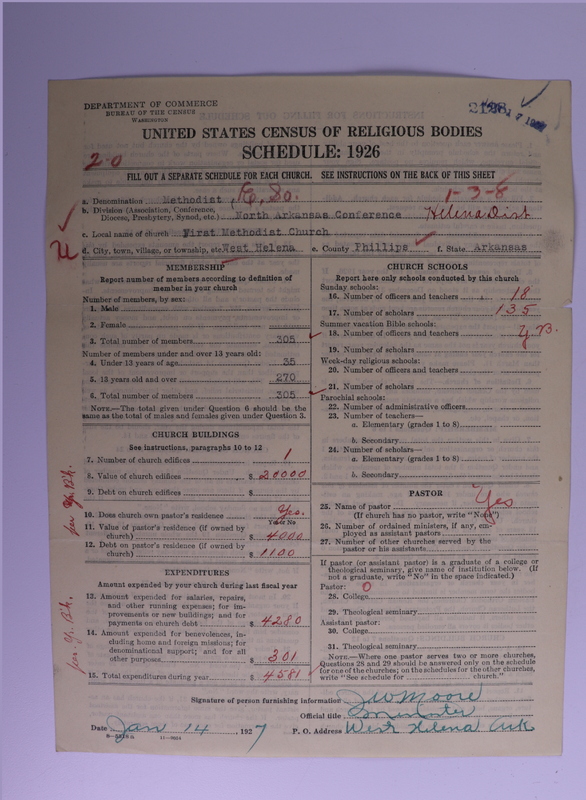 DEPARTMENT OF COMMERCE
BUREAU OF THE CENSUS
WASHINGTON
UNITED STATES CENSUS OF RELIGIOUS BODIES
SCHEDULE: 1926
2-0
FILL OUT A SEPARATE SCHEDULE FOR EACH CHURCH. SEE INSTRUCTIONS ON THE BACK OF THIS SHEET
a. Denomination Methodist, E, So. 1-3-8
b. Division (Association, Conference, Diocese, Presbytery, Synod, etc.) North Arkansas Conference Helena Dist
c. Local name of church First Methodist Church
d. City, town, village, or township, etc. West Helena e. County Phillips f. State Arkansas
MEMBERSHIP
Report number of members according to definition of member in your church
Number of members, by sex:
1. Male
2. Female
3. Total number of members 305
Number of members under and over 13 years old:
4. Under 13 years of age 35
5. 13 years old and over 270
6. Total number of members 305
NOTE.—The total given under Question 6 should be the same as the total of males and females given under Question 3.
CHURCH BUILDINGS
See instructions, paragraphs 10 to 12
7. Number of church edifices 1
8. Value of church edifices $ 20000
9. Debt on church edifices $
10. Does church own pastor's residence Yes.
Yes or No
11. Value of pastor's residence (if owned by church) $ 4000
12. Debt on pastor's residence (if owned by church) $ 1100
EXPENDITURES
Amount expended by your church during last fiscal year
13. Amount expended for salaries, repairs, and other running expenses; for improvements or new buildings; and for payments on church debt $ 4280
14. Amount expended for benevolences, including home and foreign missions; for denominational support; and for all other purposes $ 301
15. Total expenditures during year $ 4581
CHURCH SCHOOLS
Report here only schools conducted by this church
Sunday schools:
16. Number of officers and teachers 18
17. Number of scholars 135
Summer vacation Bible schools: Y.B.
18. Number of officers and teachers
19. Number of scholars
Week-day religious schools:
20. Number of officers and teachers
21. Number of scholars
Parochial schools:
22. Number of administrative officers
23. Number of teachers—
a. Elementary (grades 1 to 8)
b. Secondary
24. Number of scholars—
a. Elementary (grades 1 to 8)
b. Secondary
PASTOR
25. Name of pastor Yes
(If church has no pastor, write "None")
26. Number of ordained ministers, if any, employed as assistant pastors
27. Number of other churches served by the pastor or his assistants
If pastor (or assistant pastor) is a graduate of a college or theological seminary, give name of institution below. (If not a graduate, write "No" in the space indicated.)
Pastor: 0
28. College
29. Theological seminary
Assistant pastor:
30. College
31. Theological seminary
NOTE.—Where one pastor serves two or more churches, Questions 28 and 29 should be answered only on the schedule for one of the churches; on the schedules for the other churches, write "See schedule for church."
Signature of person furnishing information J W Moore
Official title Minister
Date Jan 14, 1927 P. O. Address West Helena Ark